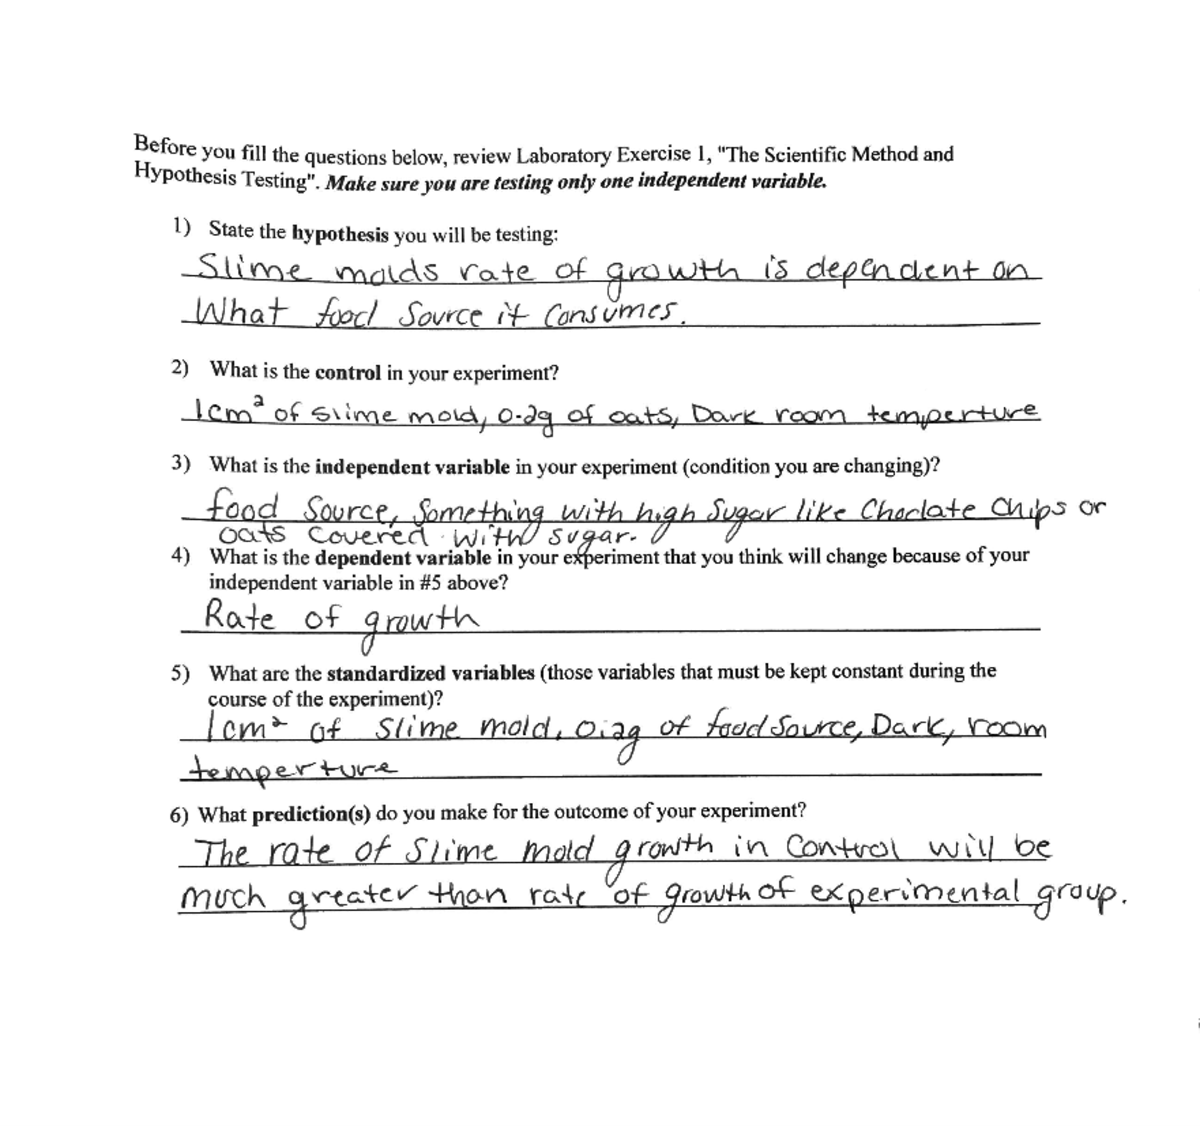 Before you fill the questions below, review Laboratory Exercise 1, "The Scientific Method and
Hypothesis Testing". Make sure you are testing only one independent variable.
1) State the hypothesis you will be testing:
Slime molds rate of growth is dependent on
What food Source it Consumes.
2) What is the control in your experiment?
1cm² of slime mold, 0.2g of oats, Dark room temperture
3) What is the independent variable in your experiment (condition you are changing)?
food Source, Something with high Sugar like Choclate Chips or
oats Covered with sugar.
4) What is the dependent variable in your experiment that you think will change because of your
independent variable in #5 above?
Rate of growth
5) What are the standardized variables (those variables that must be kept constant during the
course of the experiment)?
1cm² of Slime mold, 0.2g of food Source, Dark, room
temperture
6) What prediction(s) do you make for the outcome of your experiment?
The rate of Slime mold growth in Control will be
much greater than rate of growth of experimental group.